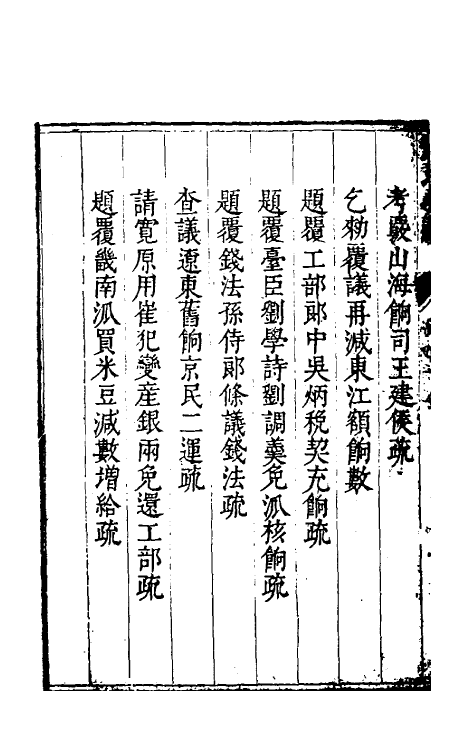 考覈山海餉司王建侯疏
乞勑覆議再減東江額餉數
題覆工部郎中吳炳稅契充餉疏
題覆臺臣劉學詩劉調羹免派核餉疏
題覆錢法孫侍郎條議錢法疏
查議遼東舊餉京民二運疏
請寬原用崔犯變產銀兩免還工部疏
題覆畿南派買米豆減數增給疏